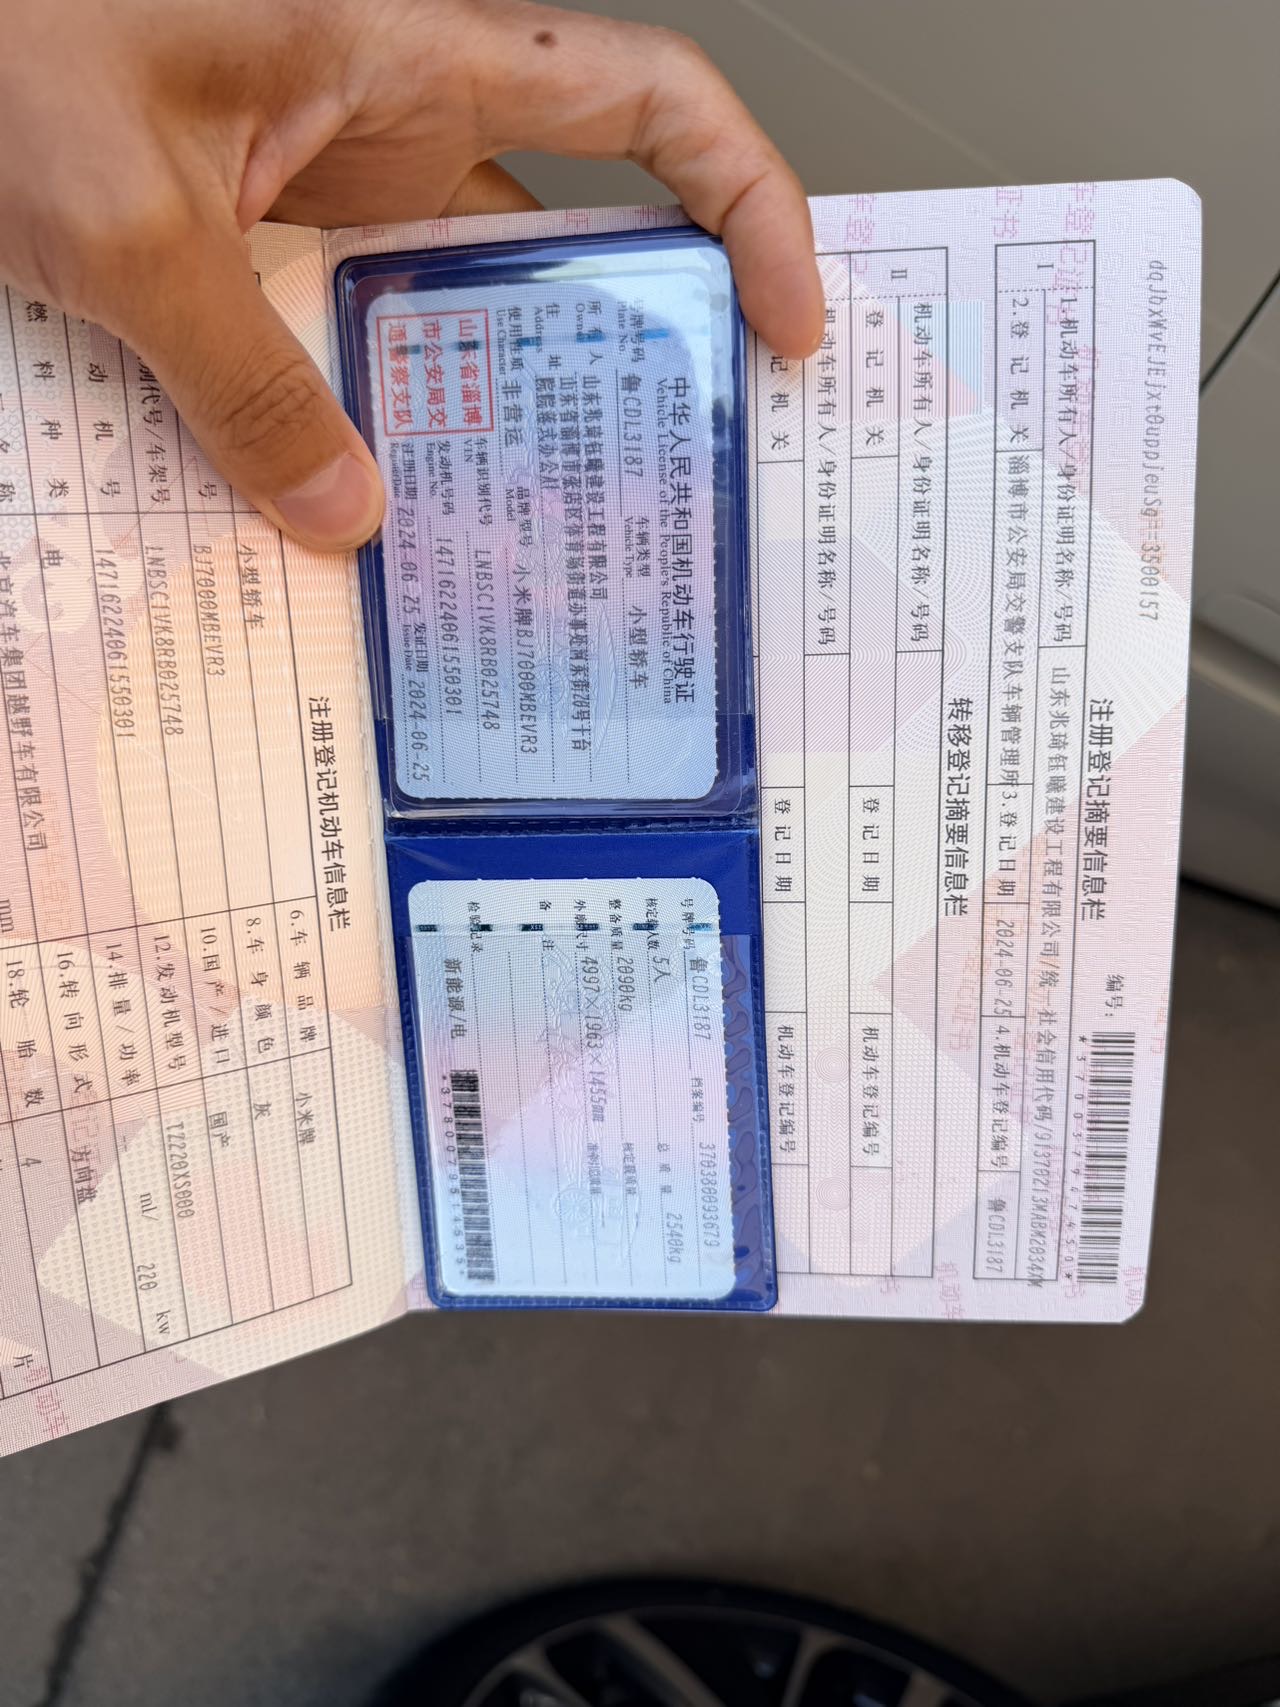 dqJbxWvEJEjxt0uppjeuSg==3500157
编号:
*370037947450*
注册登记摘要信息栏
I
1.机动车所有人/身份证明名称/号码
山东兆琦钰曦建设工程有限公司/统一社会信用代码/91370213MABM2034XM
2.登记机关
淄博市公安局交警支队车辆管理所
3.登记日期
2024-06-25
4.机动车登记编号
鲁CDL3187
转移登记摘要信息栏
II
机动车所有人/身份证明名称/号码
登记机关
登记日期
机动车登记编号
机动车所有人/身份证明名称/号码
记机关
登记日期
机动车登记编号
中华人民共和国机动车行驶证
Vehicle License of the People's Republic of China
号牌号码 鲁CDL3187 车辆类型 小型轿车
Plate No. Vehicle Type
所有人 山东兆琦钰曦建设工程有限公司
Owner
住址 山东省淄博市张店区体育场街道办事处
Address
使用性质 非营运 品牌型号 小米牌BJ7000MBEVR3
Use Character Model
山东省淄博
市公安局交
通警察支队
车辆识别代号 LNBSC1VK8RB025748
VIN
发动机号码 147162240615503​01
Engine No.
注册日期 2024-06-25 发证日期 2024-06-25
Register Date Issue Date
号牌号码 鲁CDL3187 档案编号 370380093679
核定载人数 5人 总质量 2540kg
整备质量 2090kg 核定载质量
外廓尺寸 4997×1963×1455mm 准牵引总质量
备注
检验记录 新能源/电
*3780079514635*
注册登记机动车信息栏
小型轿车
6.车辆品牌 小米牌
号 BJ7000MBEVR3
8.车身颜色 灰
别代号/车架号 LNBSC1VK8RB025748
10.国产/进口 国产
动机号 14716224061550301
12.发动机型号 TZ220XS000
燃料种类 电
14.排量/功率 -- ml/ 220 kw
名称 北京汽车集团越野车有限公司
16.转向形式 方向盘
mm
18.轮胎数 4
片